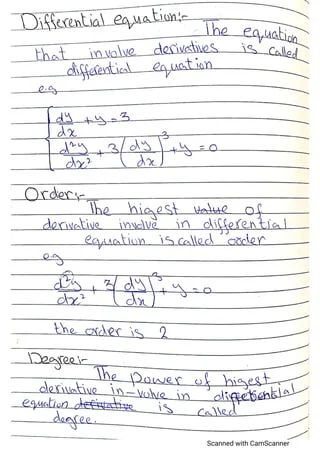 Differential equation:-
The equation
that involve derivatives is called
differential equation
e.g
dy/dx + y = 3
d²y/dx² + 3(dy/dx)³ + y = 0
Order:-
The higest value of
derivative involve in differential
equation. is called order
e.g
d²y/dx² + 3(dy/dx)³ + y = 0
the order is 2
Degree:-
The Power of higest
derivative in-volve in differential
equation derivative is called
degree.
Scanned with CamScanner